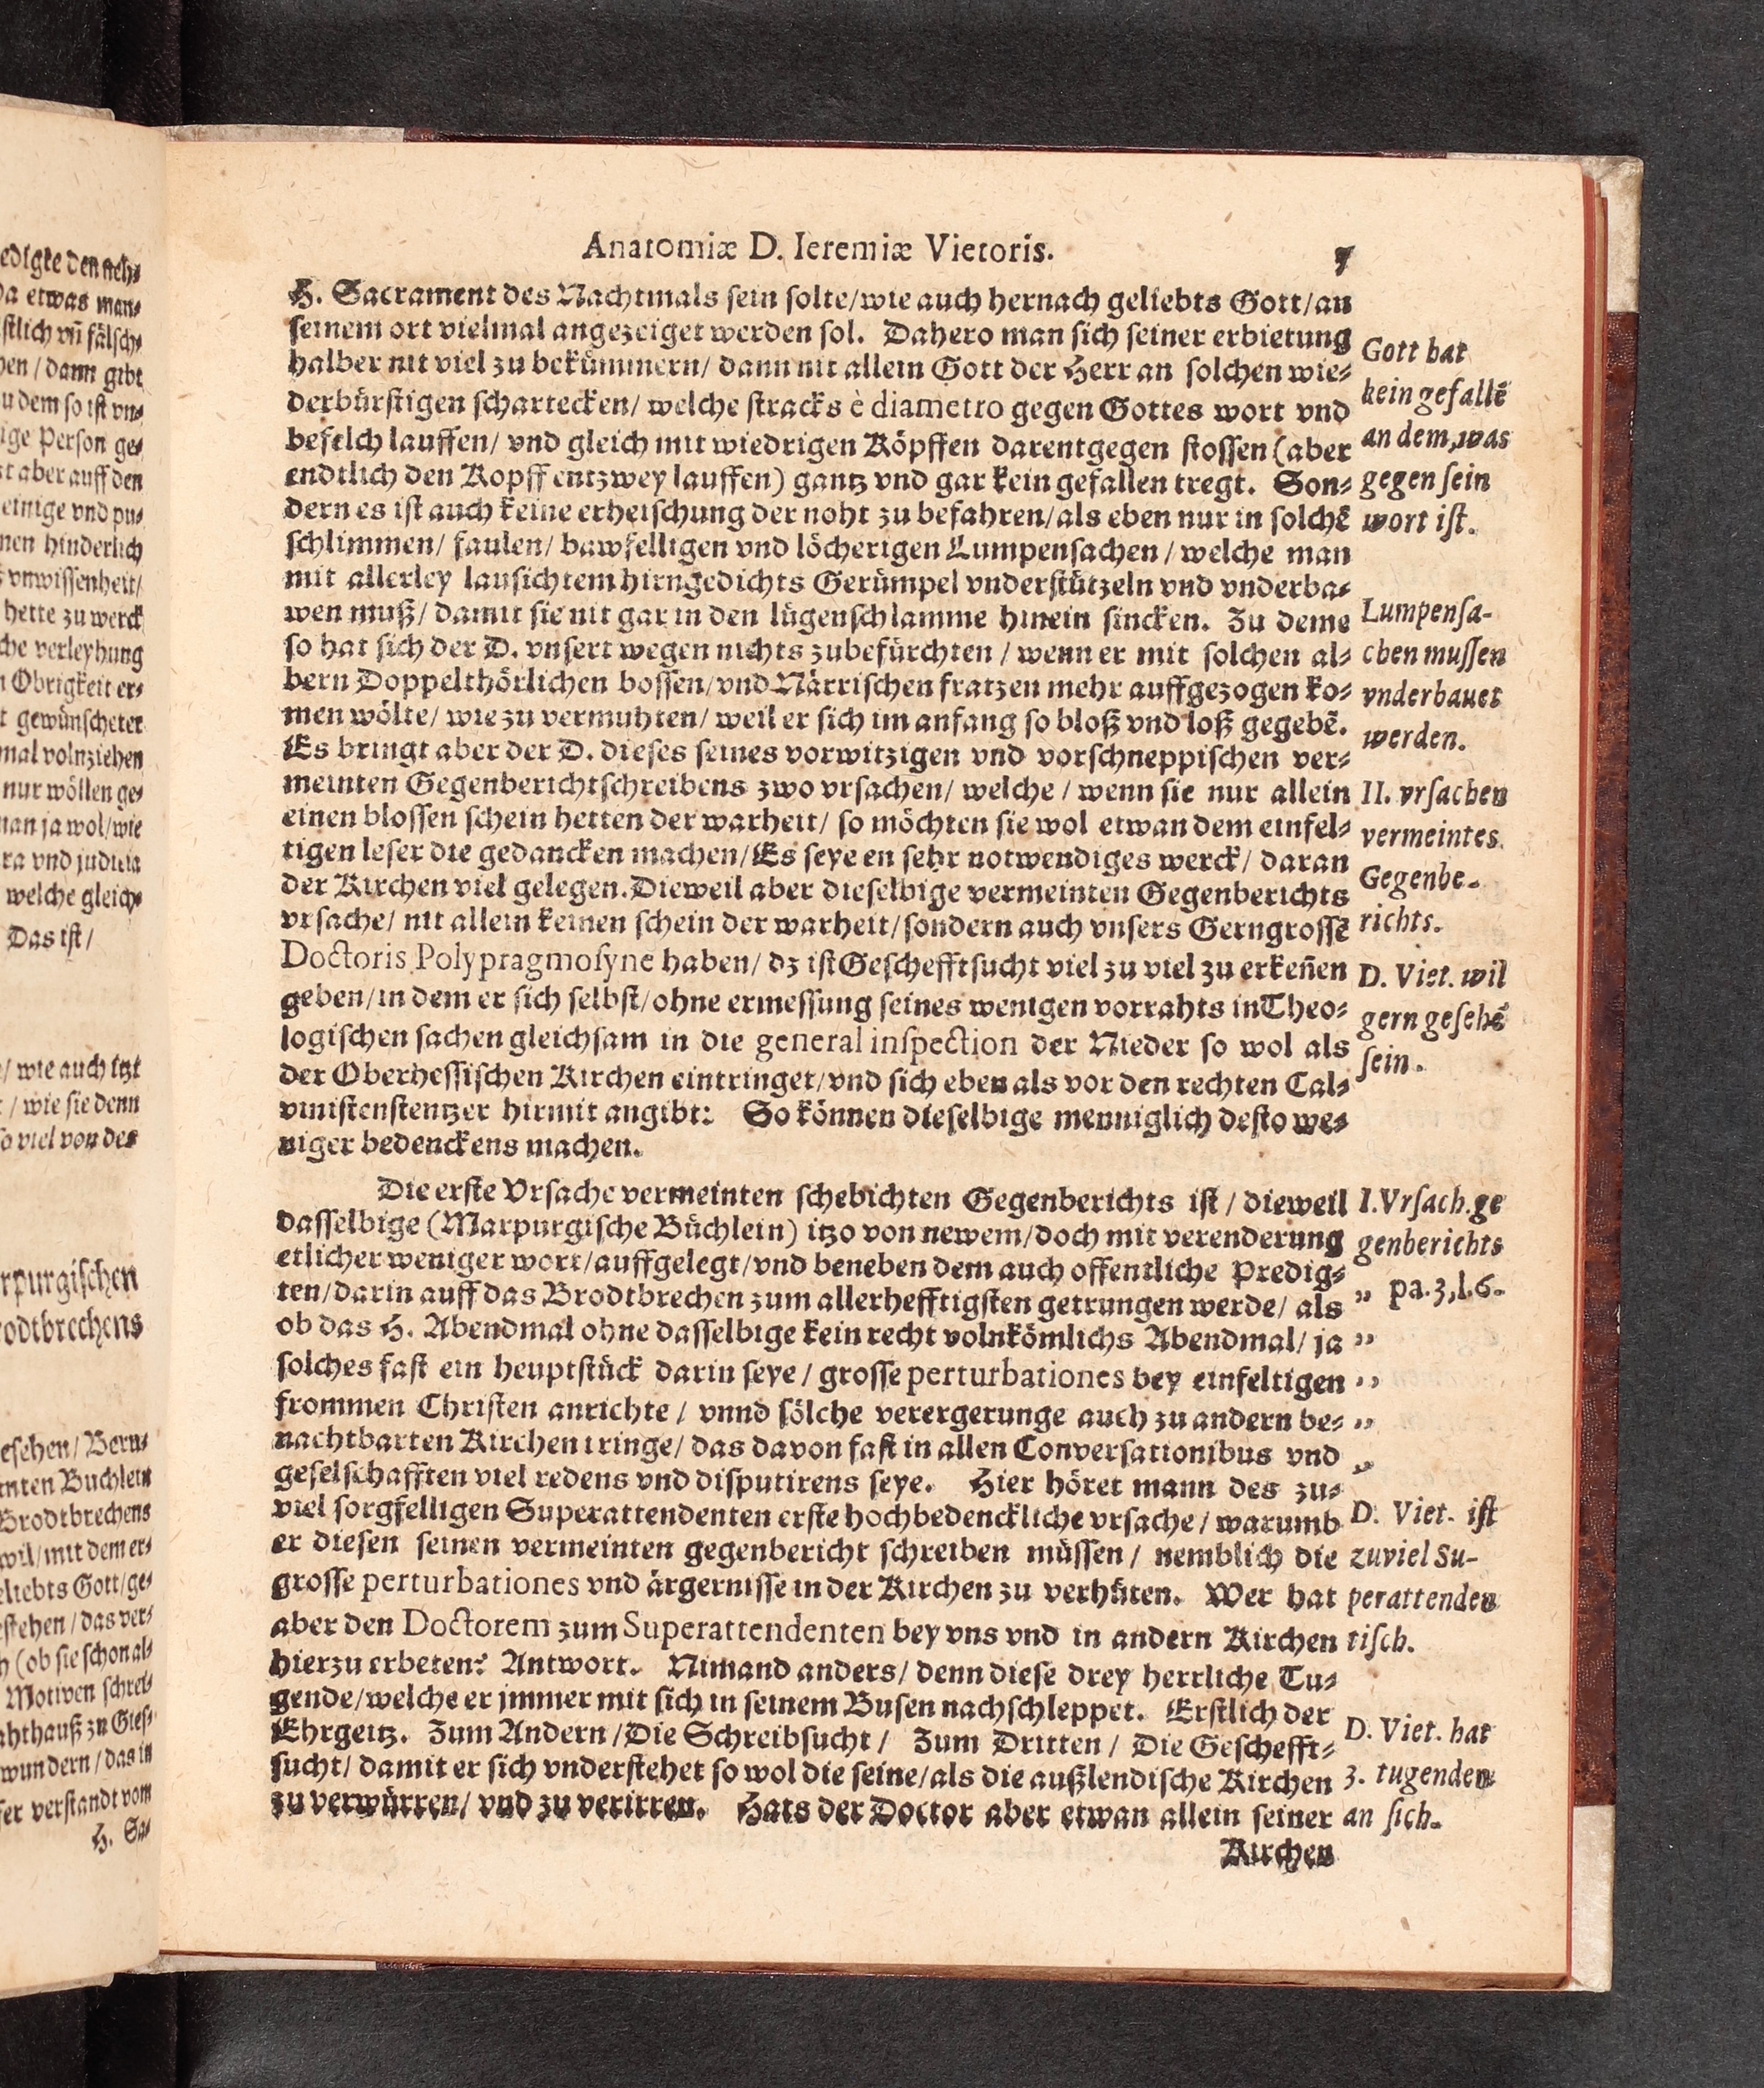 Anatomiæ D. Ieremiæ Vietoris. 7
H. Sacrament des Nachtmals sein solte/wie auch hernach geliebts Gott/an
seinem ort vielmal angezeiget werden sol. Dahero man sich seiner erbietung
halber nit viel zu bekümmern/ dann nit allein Gott der Herr an solchen wie-
derbürstigen schartecken/ welche stracks è diametro gegen Gottes wort vnd
befelch lauffen/ vnd gleich mit wiedrigen Köpffen darentgegen stossen (aber
endtlich den Kopff entzwey lauffen) gantz vnd gar kein gefallen tregt. Son-
dern es ist auch keine erheischung der noht zu befahren/als eben nur in solchẽ
schlimmen/ faulen/ bawfelligen vnd löcherigen Lumpensachen/ welche man
mit allerley lausichtem hirngedichts Gerümpel vnderstützeln vnd vnderba-
wen muß/ damit sie nit gar in den lügenschlamme hinein sincken. Zu deme
so hat sich der D. vnsert wegen nichts zubefürchten/ wenn er mit solchen al-
bern Doppelthörlichen bossen/vnd Närrischen fratzen mehr auffgezogen ko-
men wölte/ wie zu vermuhten/ weil er sich im anfang so bloß vnd loß gegebẽ.
Es bringt aber der D. dieses seines vorwitzigen vnd vorschneppischen ver-
meinten Gegenberichtschreibens zwo vrsachen/ welche/ wenn sie nur allein
einen blossen schein hetten der warheit/ so möchten sie wol etwan dem einfel-
tigen leser die gedancken machen/Es seye en sehr notwendiges werck/ daran
der Kirchen viel gelegen. Dieweil aber dieselbige vermeinten Gegenberichts
vrsache/ nit allein keinen schein der warheit/sondern auch vnsers Gerngrossẽ
Doctoris Polypragmosyne haben/ dz ist Geschefftsucht viel zu viel zu erkeñen
geben/in dem er sich selbst/ohne ermessung seines wenigen vorrahts in Theo-
logischen sachen gleichsam in die general inspection der Nieder so wol als
der Oberhessischen Kirchen eintringet/vnd sich eben als vor den rechten Cal-
vinistenstentzer hirmit angibt: So können dieselbige menniglich desto we-
niger bedenckens machen.
Die erste Vrsache vermeinten schebichten Gegenberichts ist/ dieweil
dasselbige (Marpurgische Büchlein) itzo von newem/doch mit verenderung
etlicher weniger wort/auffgelegt/vnd beneben dem auch offentliche Predig-
ten/darin auff das Brodtbrechen zum allerhefftigsten getrungen werde/ als
ob das H. Abendmal ohne dasselbige kein recht volnkömlichs Abendmal/ ja
solches fast ein heuptstück darin seye/ grosse perturbationes bey einfeltigen
frommen Christen anrichte/ vnnd sölche verergerunge auch zu andern be-
nachtbarten Kirchen tringe/ das davon fast in allen Conversationibus vnd
geselschafften viel redens vnd disputirens seye. Hier höret mann des zu-
viel sorgfelligen Superattendenten erste hochbedenckliche vrsache/ warumb
er diesen seinen vermeinten gegenbericht schreiben müssen/ nemblich die
grosse perturbationes vnd ärgernisse in der Kirchen zu verhüten. Wer hat
aber den Doctorem zum Superattendenten bey vns vnd in andern Kirchen
hierzu erbeten? Antwort. Nimand anders/ denn diese drey herrliche Tu-
gende/welche er jmmer mit sich in seinem Busen nachschleppet. Erstlich der
Ehrgeitz. Zum Andern/Die Schreibsucht/ Zum Dritten/ Die Geschefft-
sucht/ damit er sich vnderstehet so wol die seine/als die außlendische Kirchen
zu verwürren/ vnd zu verirren. Hats der Doctor aber etwan allein seiner
Kirchen
Gott hat
kein gefallẽ
an dem, was
gegen sein
wort ist.
Lumpensa-
chen mussen
vnderbauet
werden.
II. vrsachen
vermeintes
Gegenbe-
richts.
D. Viet. wil
gern gesehẽ
sein.
I. Vrsach. ge
genberichts
" pa. 3, l. 6.
"
"
"
"
D. Viet. ist
zuviel Su-
perattenden
tisch.
D. Viet. hat
3. tugenden
an sich.
hette zu werck
che verleyhung
gewünscheter
mal volnziehen
nur wöllen ge-
welche gleich-
Das ist/
/ wie auch itzt
/ wie sie denn
so viel von des
rpurgischen
odtbrechens
esehen/ Beru-
nten Buchlein
Brodtbrechens
wil/ mit dem er-
eliebts Gott/ge-
stehen/ das ver-
h (ob sie schon al-
Motiven schrei-
ahthauß zu Gies-
wundern/ das in
ser verstandt vom
H. Sa-